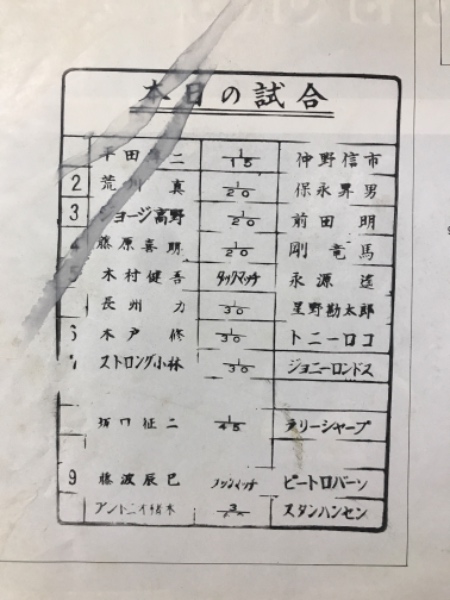 本日の試合
平田 二 1/15 仲野信市
2 荒川真 1/20 保永昇男
3 ジョージ高野 1/20 前田明
4 藤原喜明 1/20 剛竜馬
5 木村健吾 タッグマッチ 永源遙
長州力 1/30 星野勘太郎
6 木戸修 1/30 トニーロコ
7 ストロング小林 1/30 ジョニーロンドス
坂口征二 1/45 ラリーシャープ
9 藤波辰巳 タッグマッチ ピートロバーツ
アントニオ猪木 スタンハンセン